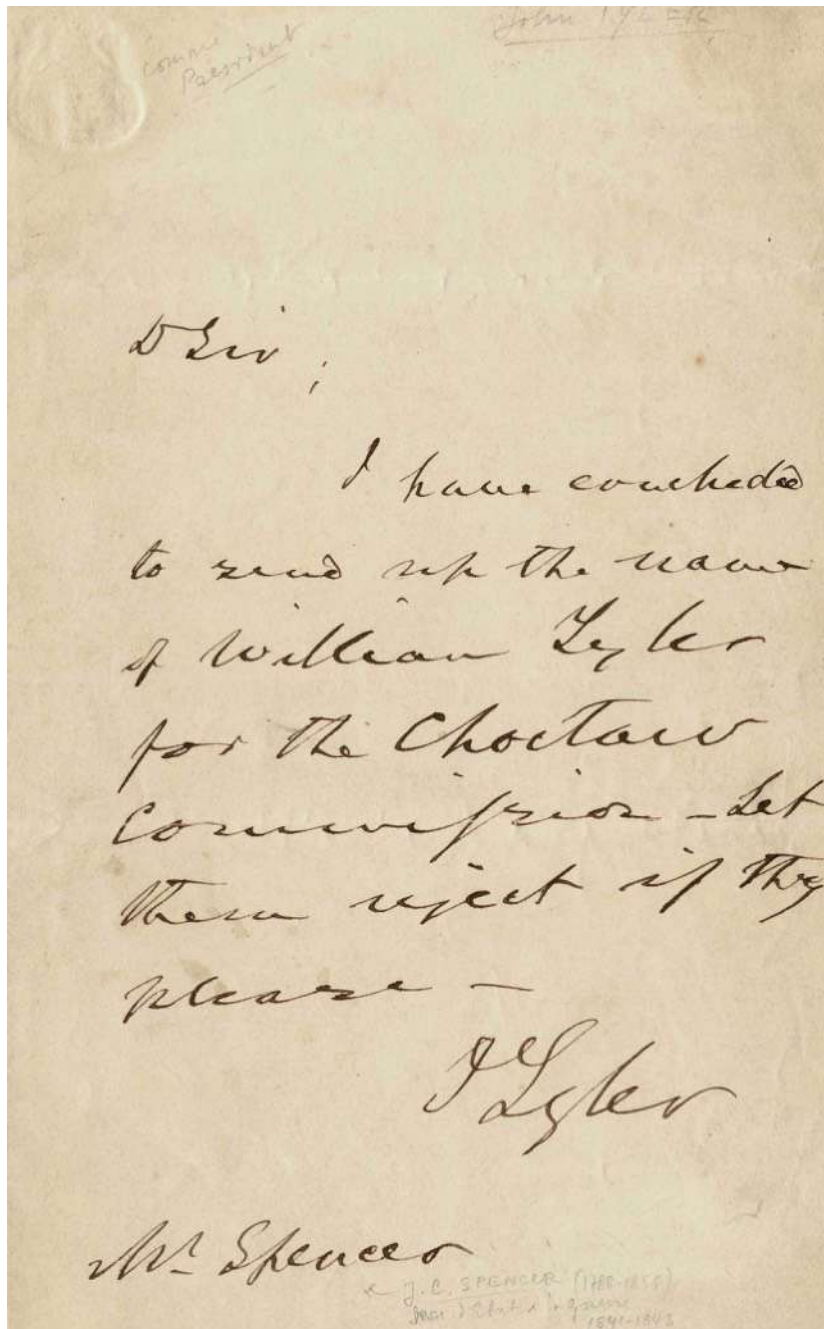 comme
Président
John TYLER
D Sir,
I have concluded
to send up the name
of William Tyler
for the Choctaw
Commission - Let
them reject if they
please -
J Tyler
Mr Spencer
J. C. SPENCER (1788-1855)
1841-1843